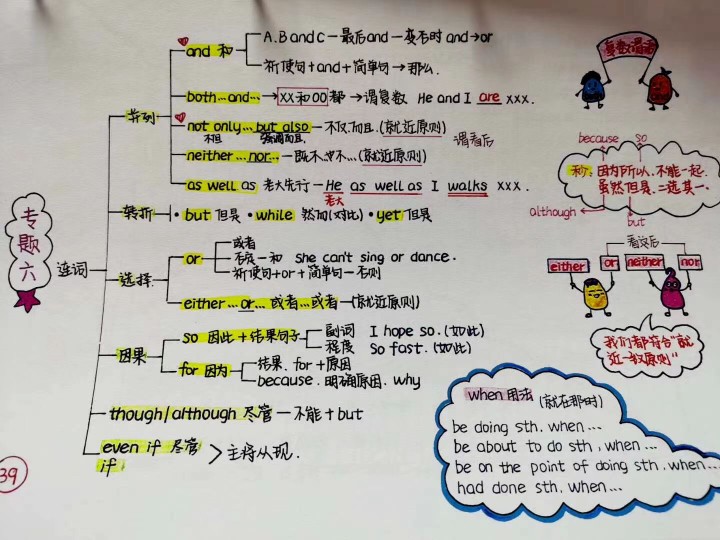 专题六
连词
并列
and 和
A.B and C — 最后and — 变否时 and → or
祈使句 + and + 简单句 → 那么.
both...and... → XX和OO都 → 谓复数 He and I are xxx.
not only...but also — 不仅.而且.(就近原则)
不但 强调而且.
谓看后
neither...nor... — 既不..也不...(就近原则)
as well as 老大先行 — He as well as I walks xxx.
老大
转折
· but 但是 · while 然而(对比) · yet 但是
选择
or
或者
否定 — 和 she can't sing or dance.
祈使句 + or + 简单句 — 否则
either...or... 或者...或者 — (就近原则)
因果
so 因此 + 结果句子
副词 I hope so. (如此)
程度 So fast. (如此)
for 因为
结果. for + 原因
because. 明确原因. why
though/although 尽管 — 不能 + but
even if 尽管
if
> 主将从现.
39
复数谓语
because so
秒: 因为所以, 不能一起.
虽然但是, 二选其一.
although but
看这后
either or neither nor
我们都符合"就
近一致原则"
when 用法 (就在那时)
be doing sth. when...
be about to do sth, when...
be on the point of doing sth, when...
had done sth, when...